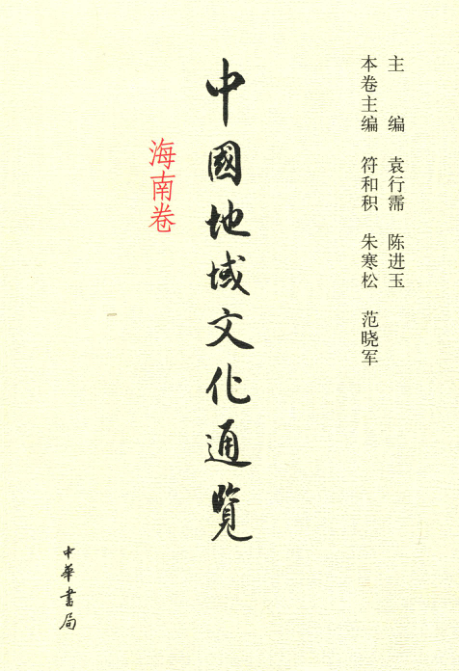 主 编 袁行霈 陈进玉
本卷主编 符和积 朱寒松 范晓军
中國地域文化通覽
海南卷
中華書局